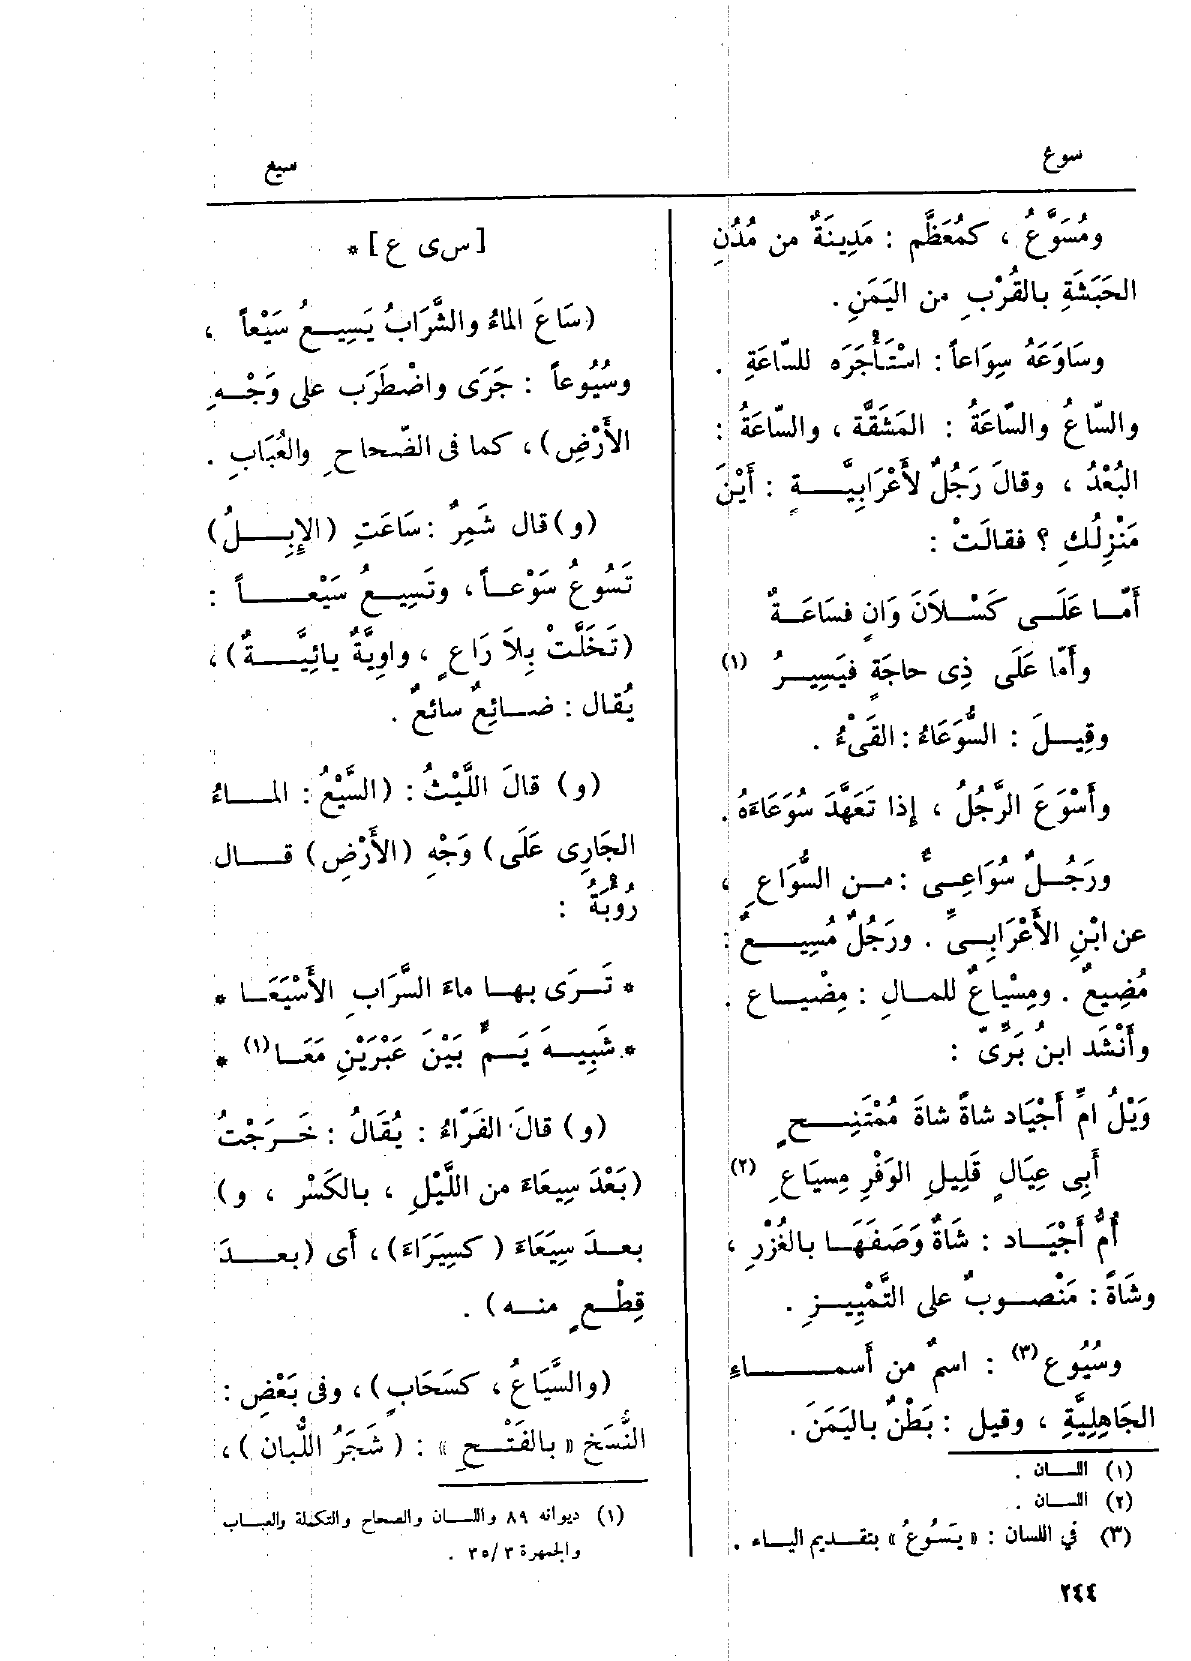 سوع
سيع
ومُسَوَّعُ ، كمُعَظَّم : مَدِينَةٌ من مُدُنِ
الحَبَشَةِ بالقُرْبِ من اليَمَنِ .
وسَاوَعَهُ سِوَاعاً : اسْتَأْجَرَه للسّاعَةِ .
والسّاعُ والسّاعَةُ : المَشَقَّة ، والسّاعَةُ :
البُعْدُ ، وقالَ رَجُلٌ لأَعْرَابِيَّةٍ : أَيْنَ
مَنْزِلُكِ ؟ فقالَتْ :
أَمّا عَلَى كَسْلَانَ وَانٍ فسَاعَةٌ
وأَمّا عَلَى ذِى حاجَةٍ فيَسِيرُ (١)
وقِيلَ : السُّوَعَاءُ : القَىْءُ .
وأَسْوَعَ الرَّجُلُ ، إذا تَعَهَّدَ سُوَعَاءَهُ .
ورَجُلٌ سُوَاعِىٌّ : من السُّوَاعِ ،
عن ابْنِ الأَعْرَابِىِّ . ورَجُلٌ مُسِيعٌ :
مُضِيعٌ . ومِسْيَاعٌ للمالِ : مِضْيَاع .
وأَنْشَد ابنُ بَرِّىّ :
وَيْلُ امِّ أَجْيَاد شاةً شاةَ مُمْتَنِحٍ
أَبِى عِيَالٍ قَلِيلِ الوَفْرِ مِسيَاعِ (٢)
أُمُّ أَجْيَاد : شَاةٌ وَصَفَهَا بالغُزْرِ ،
وشَاةً : مَنْصوبٌ على التَّمْيِيزِ .
وسُيُوع (٣) : اسمٌ من أَسماءِ
الجَاهِلِيَّةِ ، وقيل : بَطْنٌ باليَمَنَ .
(١) اللسان .
(٢) اللسان .
(٣) في اللسان : « يَسُوعُ » بتقديم الياء .
[ س ى ع ] *
(سَاعَ الماءُ والشَّرَابُ يَسِيعُ سَيْعاً ،
وسُيُوعاً : جَرَى واضْطَرَب على وَجْهِ
الأَرْضِ) ، كما فى الصّحاحِ والعُبَابِ .
(و) قال شَمِرٌ : سَاعَتِ (الإِبِلُ)
تَسُوعُ سَوْعاً ، وتَسِيعُ سَيْعاً :
(تَخَلَّتْ بِلاَ رَاعٍ ، واوِيَّةٌ يائِيَّةٌ) ،
يُقال : ضائِعٌ سائعٌ .
(و) قالَ اللَّيْثُ : (السَّيْعُ : الماءُ
الجَارِى عَلَى) وَجْهِ (الأَرْضِ) قال
رُؤْبَةُ :
* تَرَى بها ماءَ السَّرَابِ الأَسْيَعَا *
* شَبِيهَ يَمٍّ بَيْنَ عَبْرَيْنِ مَعَا (١) *
(و) قالَ الفَرّاءُ : يُقَالُ : خَرَجْتُ
(بَعْدَ سِيعَاءَ من اللَّيْلِ ، بالكَسْر ، و)
بعدَ سِيَعَاءَ (كسِيَرَاءَ) ، أَى (بعدَ
قِطْعٍ منه) .
(والسَّيَاعُ ، كسَحَابٍ) ، وفى بَعْضِ :
النُّسَخِ « بالفَتْحِ » : ( شَجَرُ اللُّبان ) ،
(١) ديوانه ٨٩ واللسان والصحاح والتكملة والعباب
والجمهرة ٣ /٣٥ .
٢٤٤